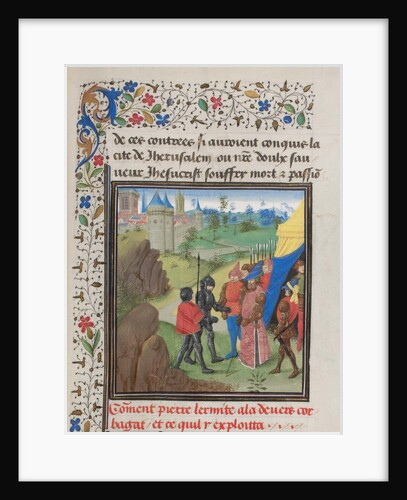 de ces contrees si auroient conquis la
cite de Jherusalem ou nr̄e doulx sau
ueur Jhesucrist souffry mort ⁊ passiō
Cōment pierre lermite ala deuers cor
bagat et ce quil y exploitta